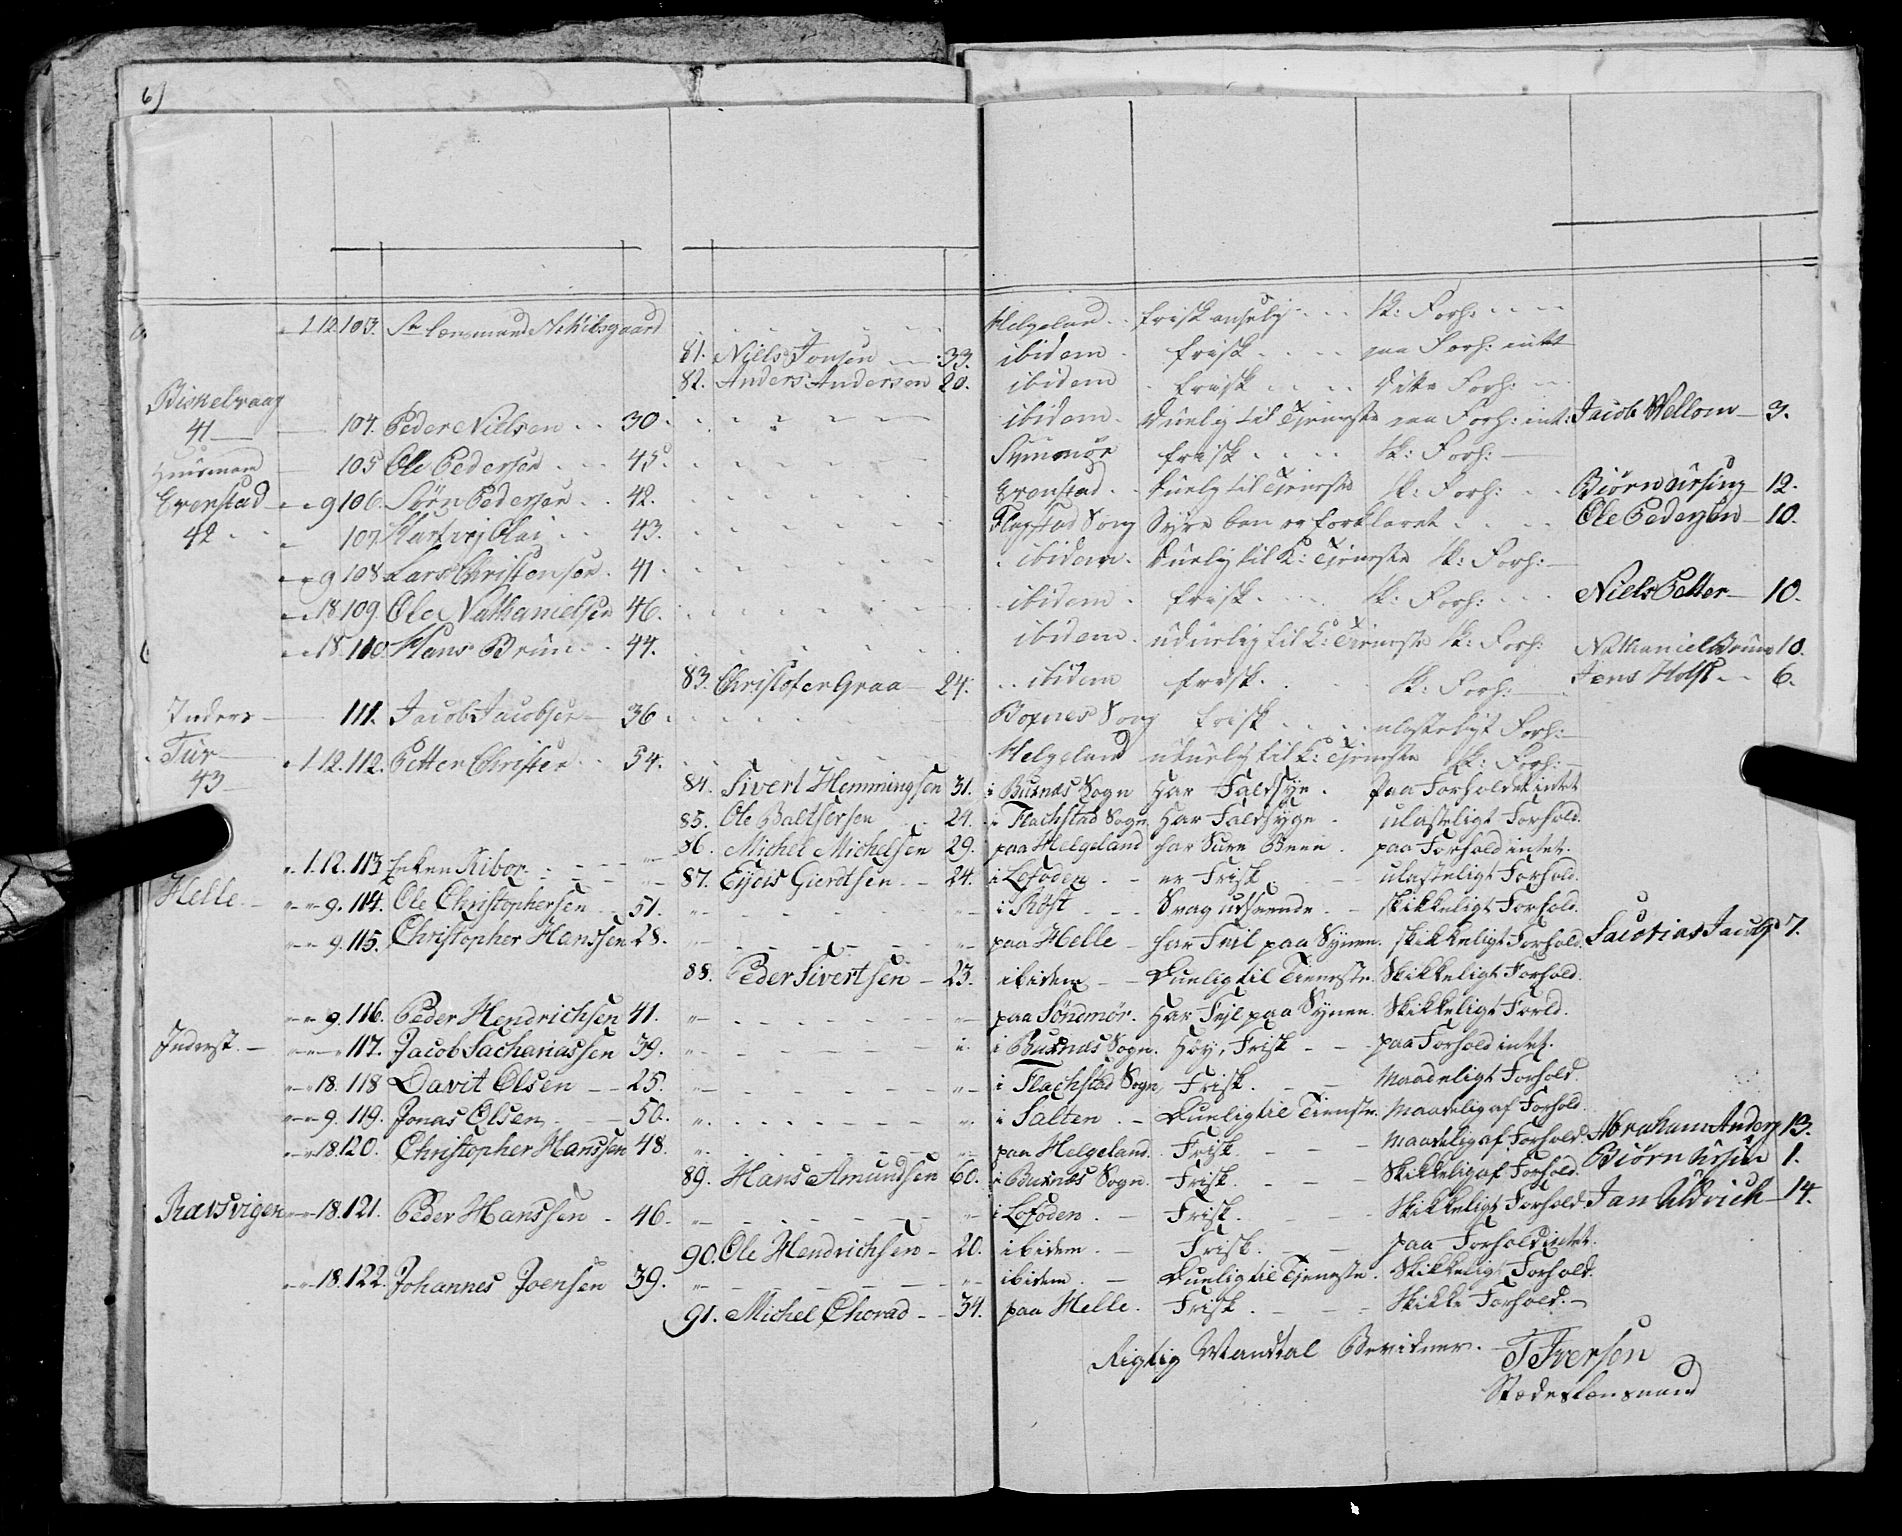 6)
1.12.103. Sr Lensmand Schilsgaard Helgeland frisk anselig Sk: Forh:
81. Niels Jonsen 33. ibidem frisk paa Forh: intet
82. Anders Andersen 20. ibidem frisk Dito Forh:
Biskelvaag
41 104. Peder Nielsen 30 ibidem duelig til Tjeneste paa Forh: int: Jacob Wellom 3.
Huusmand 105 Ole Pedersen 45. Synmør frisk Sk: Forh:
Evenstad 9 106. Sørn Pedersen 42. Evenstad duelg til Tjeneste Sk: Forh: Biørn Ursing 12.
42 107. Hartvig Olai 43. Flagstad Song Syge ben er forklaret Ole Pedersen 10.
9 108 Lars Christensen 41 ibidem duelig til K: Tjeneste Sk: Forh:
18 109. Ole Nathanielsen 46. ibidem frisk Sk: Forh: Niels Petter 10.
18. 110. Hans Bruun 44. ibidem uduelig til K: Tjeneste Sk: Forh: Nathaniel Bruun 10.
83. Christofer Graa 24. ibidem frisk Sk: Forh: Jens Holst 6.
Inders 111. Jacob Jacobsen 36 Boxnes Song frisk ulasteligt Forh:
Tur 1.12.112. Petter Christen 54. Helgeland uduelig til K: Tjeneste Sk: Forh:
43 84. Sivert Hemmingsen 31. i Buxnæs Sogn Har Faldsyge paa Forholdet intet
85. Ole Baltsersen 24. i Flachstad Sogn Har Faldsyge ulasteligt Forhold.
86. Michel Michelsen 29. paa Helgeland har Sure Been paa Forhold intet.
1.12.113 Enken Kibor 87. Eijeis Gierdtsen 24. i Lofoden er Frisk ulasteligt Forhold.
Helle 9. 114. Ole Christophersen 51. i Røst Svag udseende skikkeligt Forhold.
9. 115. Christopher Hanssen 28. paa Helle har Feil paa Synen. skikkeligt Forhold. Sacarias Jacobs 7.
88. Peder Sivertsen 23. ibidem Duelig til Tieneste Skikkeligt Forhold.
9. 116. Peder Hendrichsen 41. paa Søndmør. Har Fejl paa Synen. Skikkeligt Forld.
Inderst. 117. Jacob Sachariassen 39. i Buxnæs Sogn. Høy, Frisk paa Forhold intet.
18. 118 Davit Olsen 25. i Flachstad Sogn Frisk. Maadeligt Forhold.
9. 119. Jonas Olsen 50. i Salten Duelig til Tieneste. Maadelig af Forhold.
18.120. Christopher Hanssen 48. paa Helgeland. Frisk. Maadelig af Forhold. Abraham Anders 13.
89. Hans Amundsen 60. i Buxnæs Sogn. Frisk. Skikkelig af Forhold. Biørn Ursin 1.
Ravsvigen 18.121. Peder Hanssen 46. i Lofoden. Frisk. Skikkeligt Forhold. Jan Uldrich 14.
90. Ole Hendrichsen 20. ibidem. Frisk. paa Forhold intet.
18.122. Johannes Joensen 39. ibidem. Duelig til Tjeneste. Skikkeligt Forhold.
91. Michel Chorad 34. paa Helle. Frisk. Skikke Forhold.
Rigtig Mandtal Bevidner. T Iversen
Stædeslænsmand